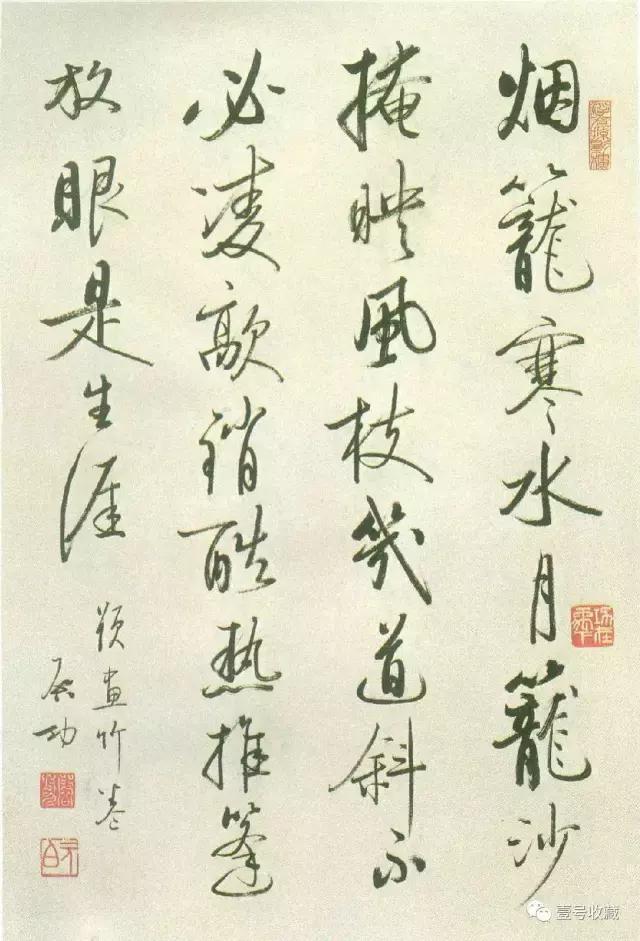 烟籠寒水月籠沙
掩映風枝幾道斜不
必凌歊銷酷熱推篷
放眼是生涯
題畫竹卷
启功
元白
壹号收藏